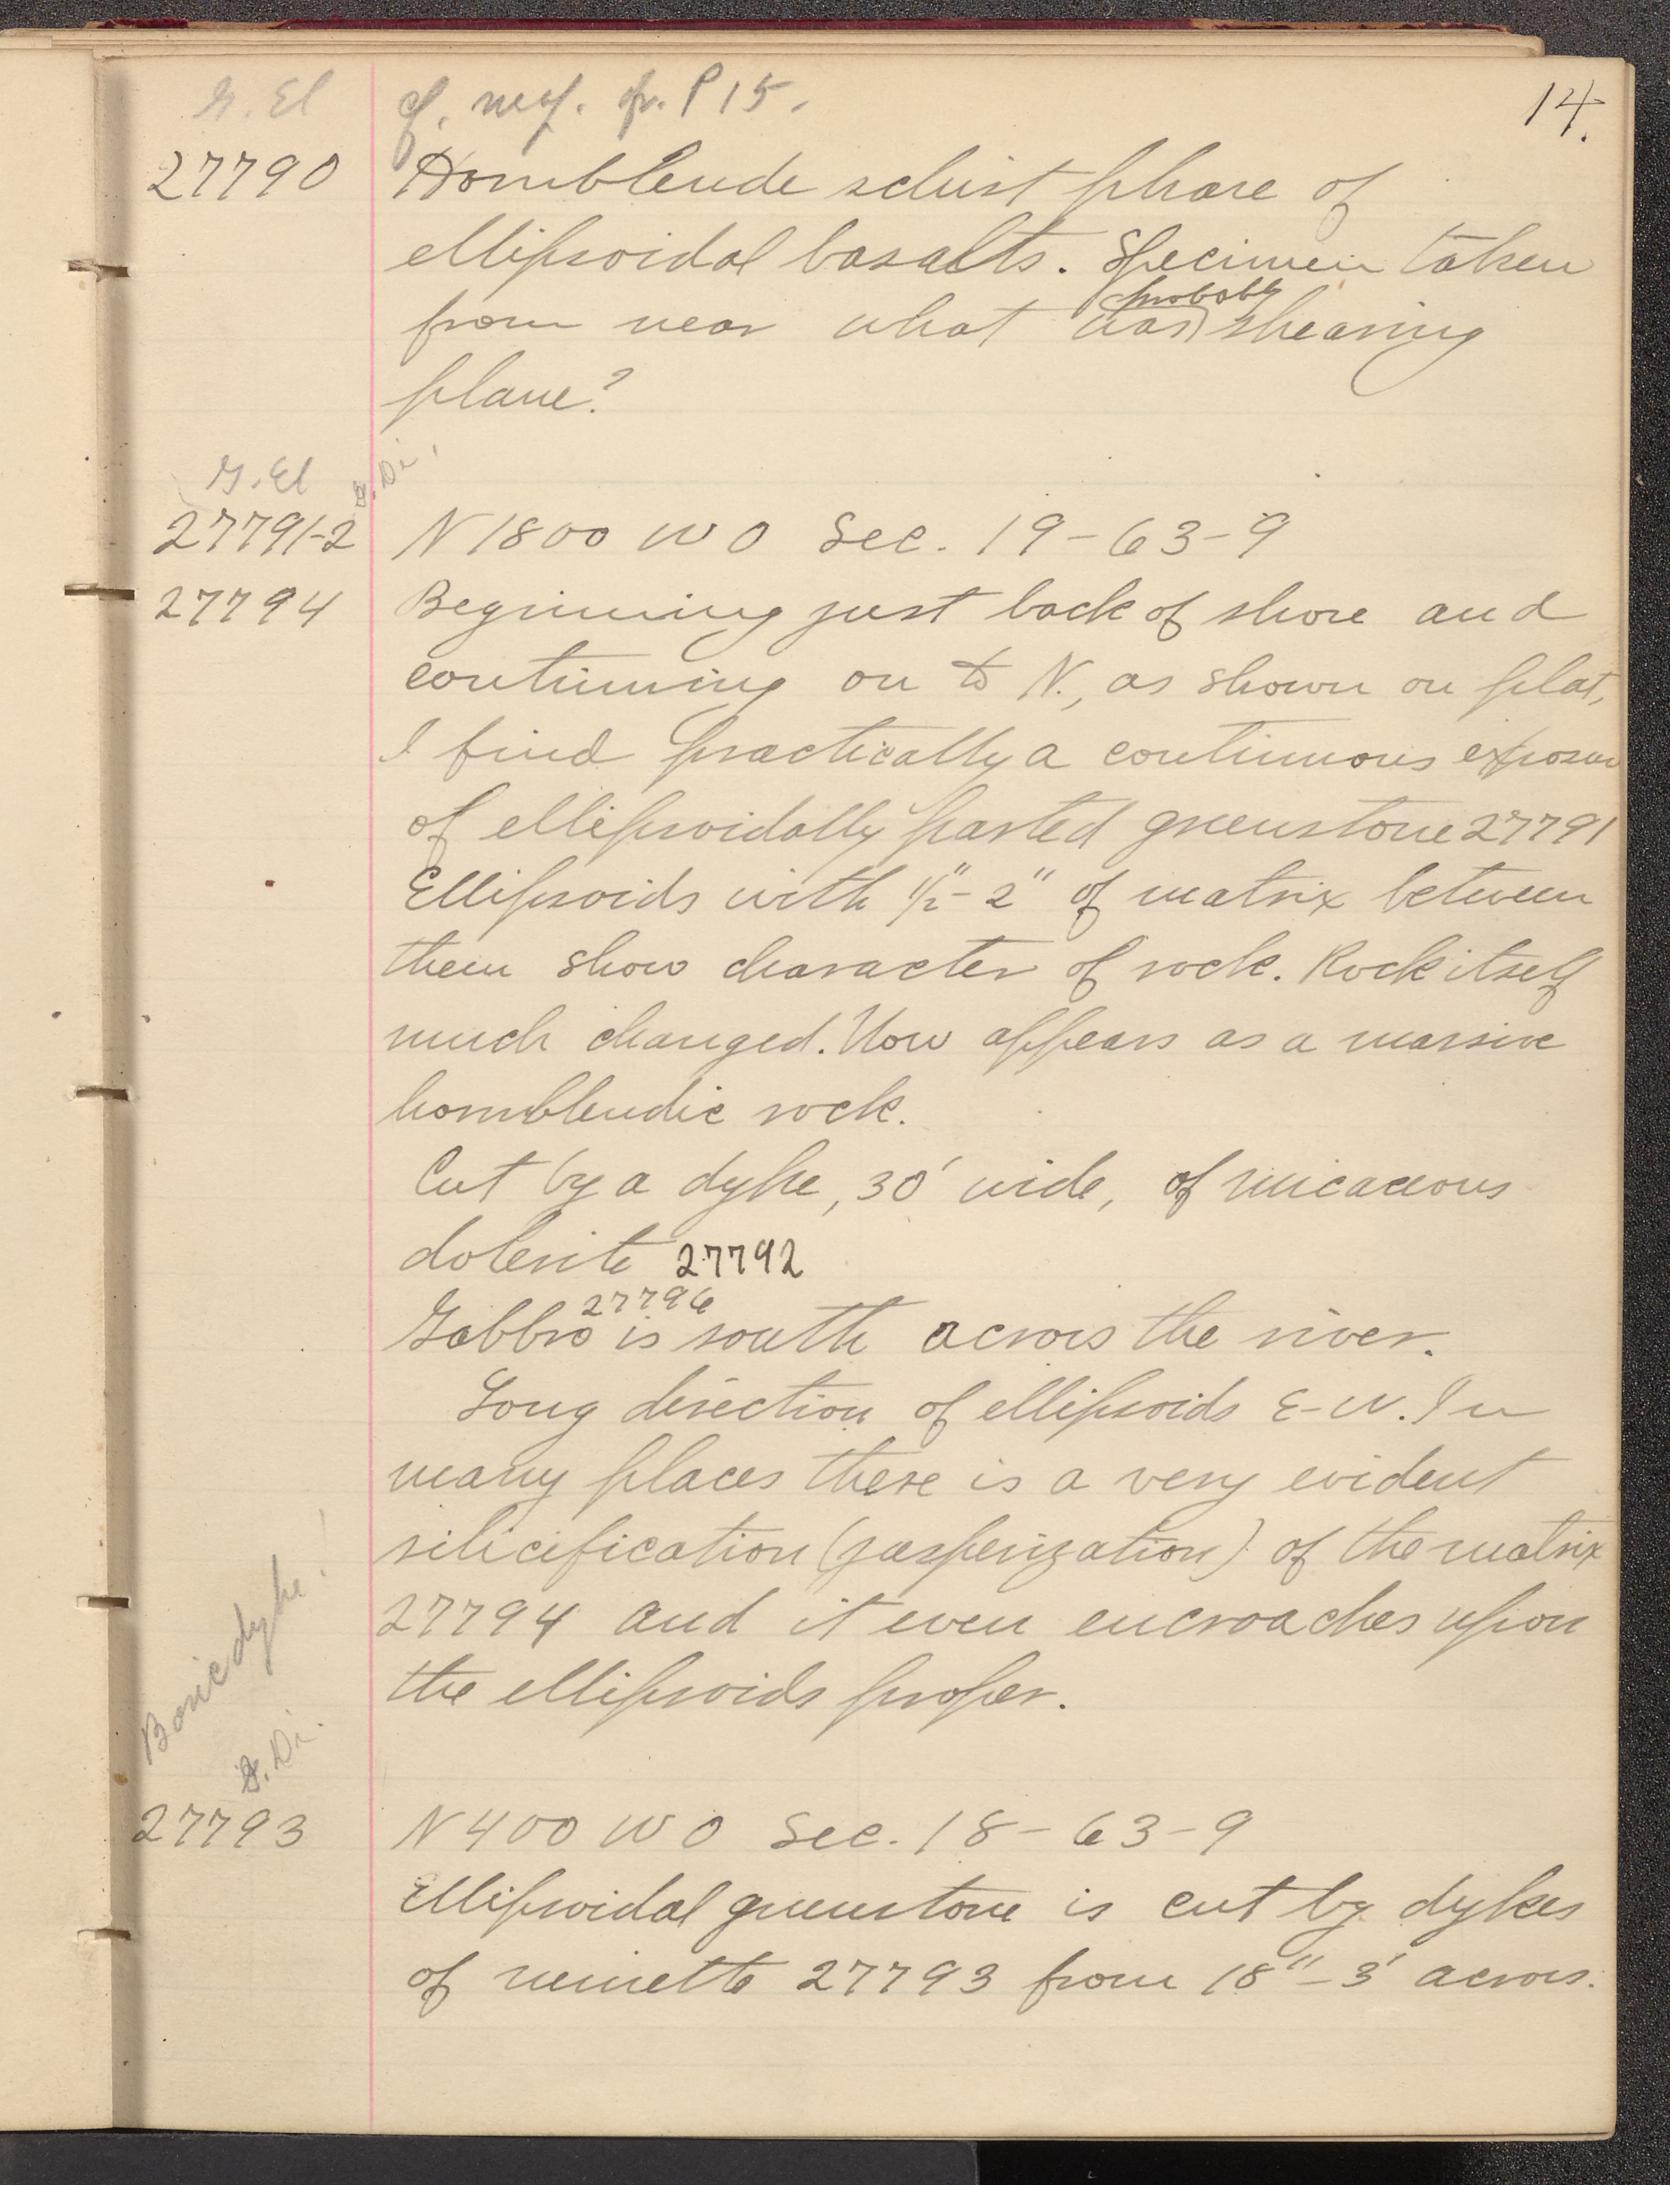 14.
G. El
cf. neg. p. P 15.
27790 Hornblende schist phase of
ellipsoidal basalts. Specimen taken
probably
from near what was shearing
plane?
G. El G. Di.
27791-2 N 1800 W 0 Sec. 19-63-9
27794 Beginning just back of shore and
continuing on to N., as shown on plat,
I find practically a continuous exposure
of ellipsoidally parted greenstone 27791
Ellipsoids with 1/2"-2" of matrix between
them show character of rock. Rock itself
much changed. Now appears as a massive
hornblendic rock.
Cut by a dyke, 30' wide, of micaceous
dolerite 27792
27796
Gabbro is south across the river.
Long direction of ellipsoids E-W. In
many places there is a very evident
silicification (jasperization) of the matrix
27794 and it even encroaches upon
the ellipsoids proper.
Basic dyke!
G. Di.
27793 N 400 W 0 Sec. 18-63-9
Ellipsoidal greenstone is cut by dykes
of minette 27793 from 18"-3' across.